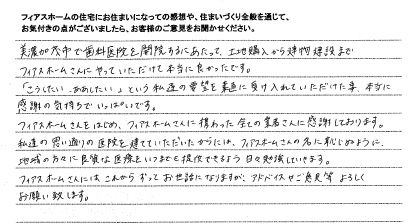 フィアスホームの住宅にお住まいになっての感想や、住まいづくり全般を通じて、
お気付きの点がございましたら、お客様のご意見をお聞かせください。
美濃加茂市で歯科医院を開院するにあたって、土地購入から建物建設まで
フィアスホームさんにやっていただけて本当に良かったです。
「こうしたい、ああしたい」という私達の要望を素直に受け入れていただけた事、本当に
感謝の気持ちでいっぱいです。
フィアスホームさんをはじめ、フィアスホームさんに携わった全ての業者さんに感謝しております。
私達の思い通りの医院を建てていただいたからには、フィアスホームさんの名に恥じぬように、
地域の方々に良質な医療をいつまでも提供できるよう 日々勉強していきます。
フィアスホームさんには、これからずっとお世話になりますが、アドバイスやご意見等 よろしく
お願い致します。